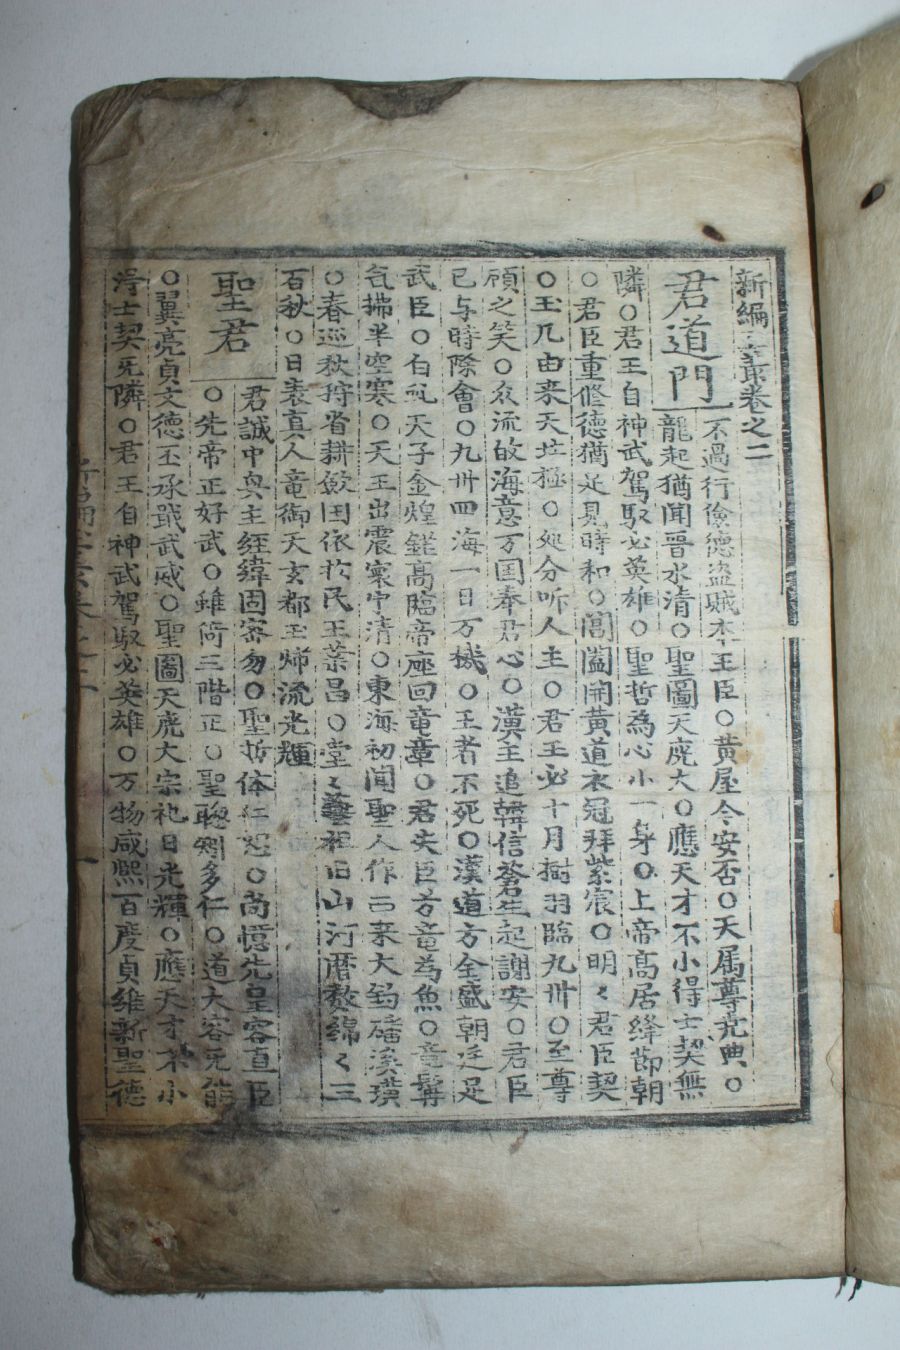 新編叢卷之二
君道門
不過行儉德盗賊本王臣○黄屋今安否○天属尊尭典○
龍起猶聞晋水清○聖圖天廣大○應天才不小得士契無
隣○君王自神武駕馭必英雄○聖哲為心小一身○上帝高居絳節朝
○君臣重修德猶足見時和○閶闔開黄道衣冠拜紫宸○明〻君臣契
○玉几由来天北極○处分听人主○君王必十月樹羽臨九州○至尊
顔之笑○众流故海意万国奉君心○漢主追韓信蒼生起謝安○君臣
已与時際會○九州四海一日万機○王者不死○漢道方全盛朝廷足
武臣○白天子金煌鎧高臨帝座回竜章○君失臣方竜為魚○竜髯
氛拂半空寒○天王出震寰宇清○東海初聞聖人作而来大釣磻溪璜
○春巡秋狩省耕歛囯依於民王業昌○堂〻藝祖旧山河暦数綿〻三
百秋○日表真人竜御天玄都玉帰流光輝
聖君
君誠中興主経緯固密勿○聖哲体仁恕○尚憶先皇容直臣
○先帝正好武○雖倚三階正○聖聡矧多仁○道大容无能
○翼亮貞文德丕承戢武威○聖圖天廣大宗祀日光輝○應天才不小
淂士契无隣○君王自神武駕馭必英雄○万物咸熙百度貞維新聖德